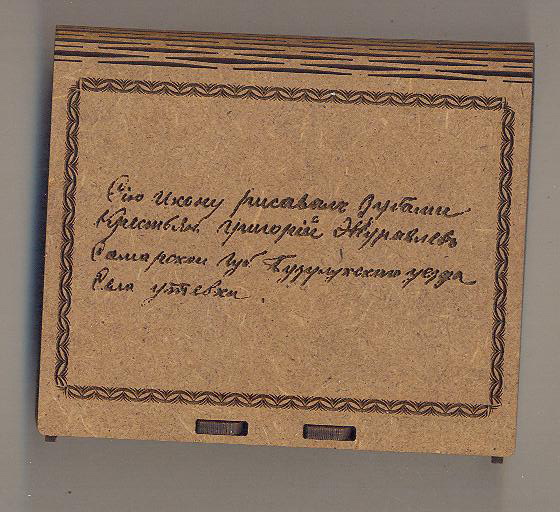 Сію икону рисавалъ Зубами
Крестьян. григорій Журавлевъ
Самарской губ. Бузулукскаго уезда
Села утевки.